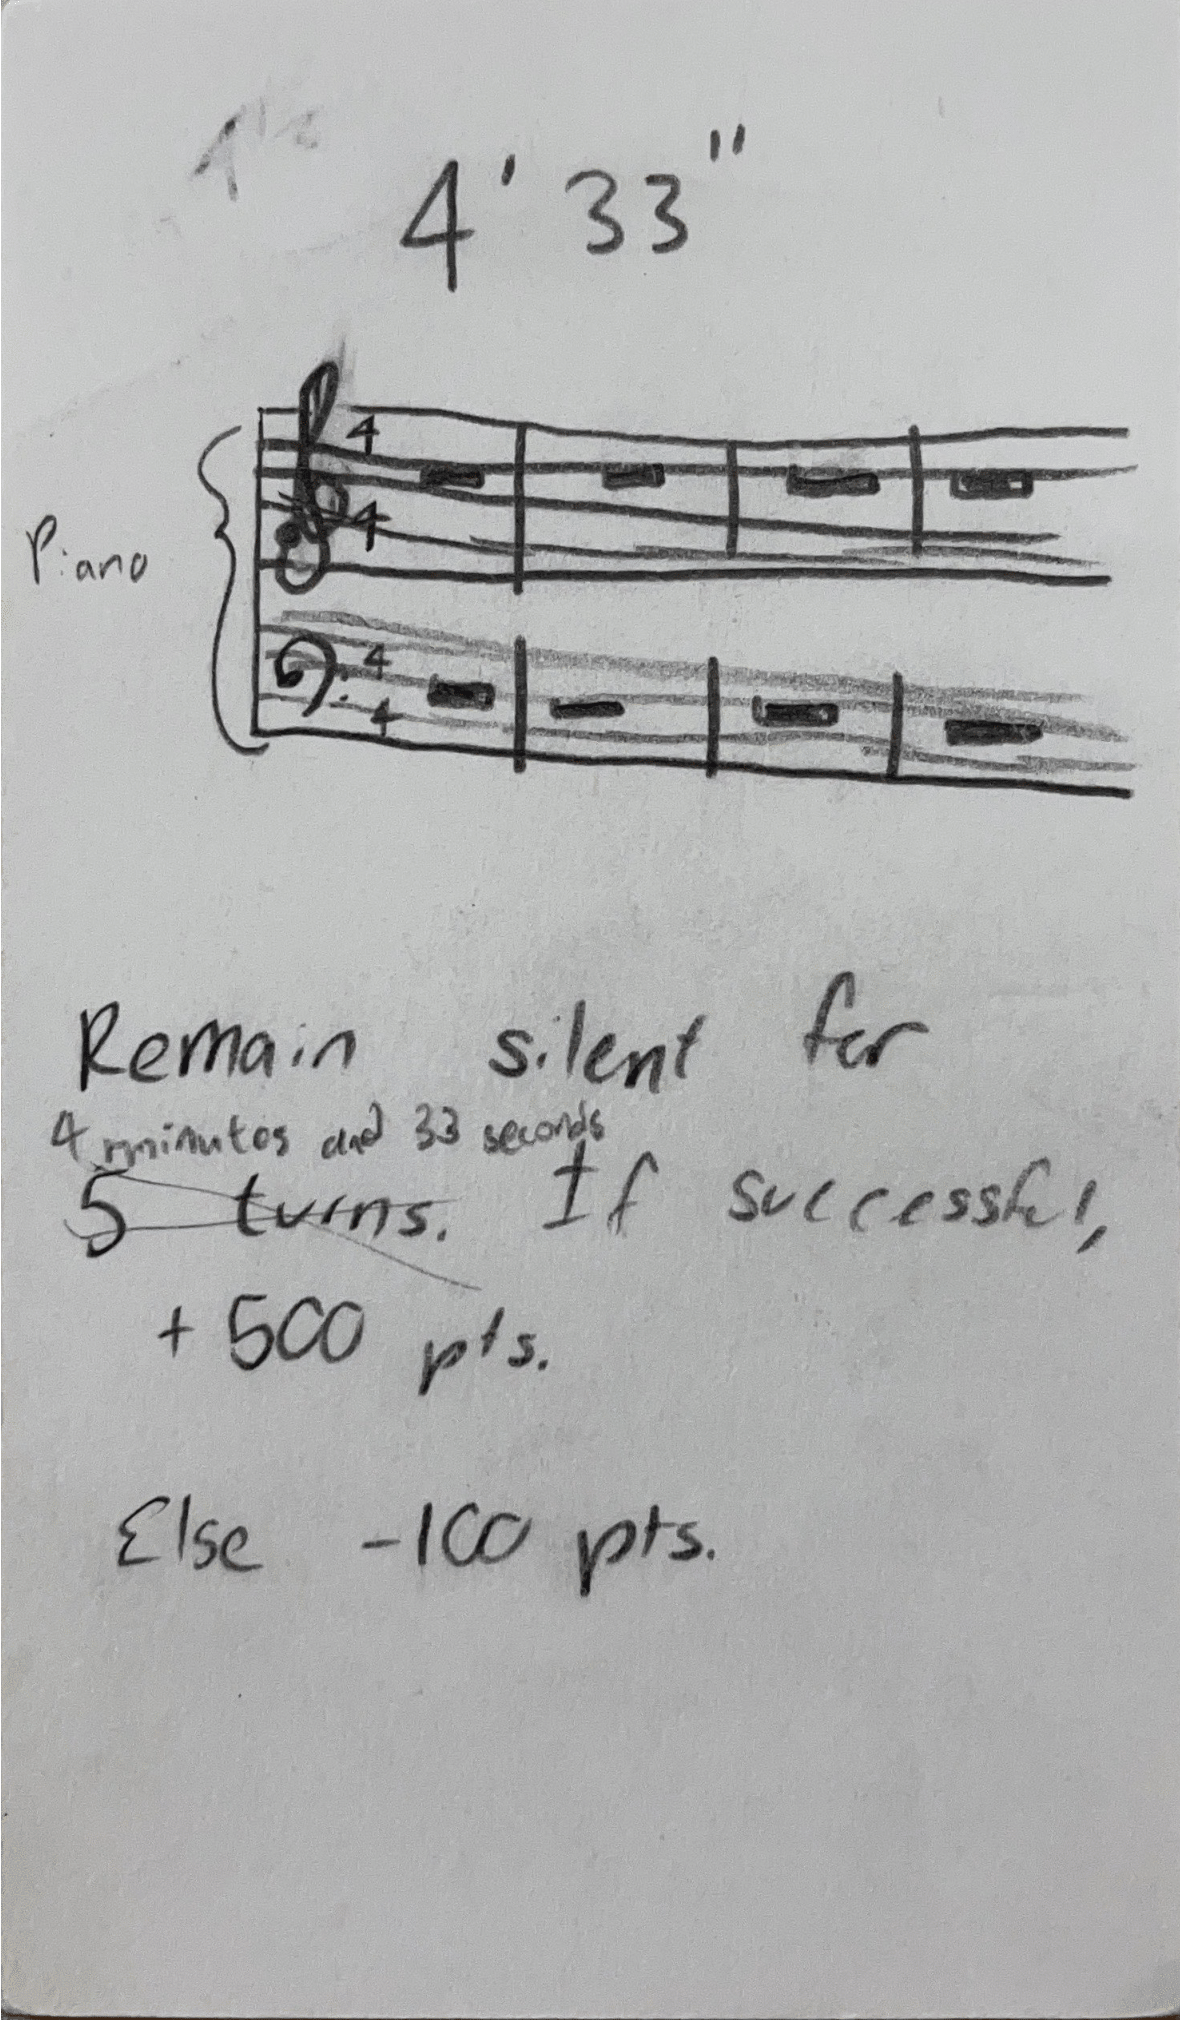 4'33"
4
4
Piano
4
4
Remain silent for
4 minutes and 33 seconds
5 turns. If successful,
+500 pts.
Else -100 pts.